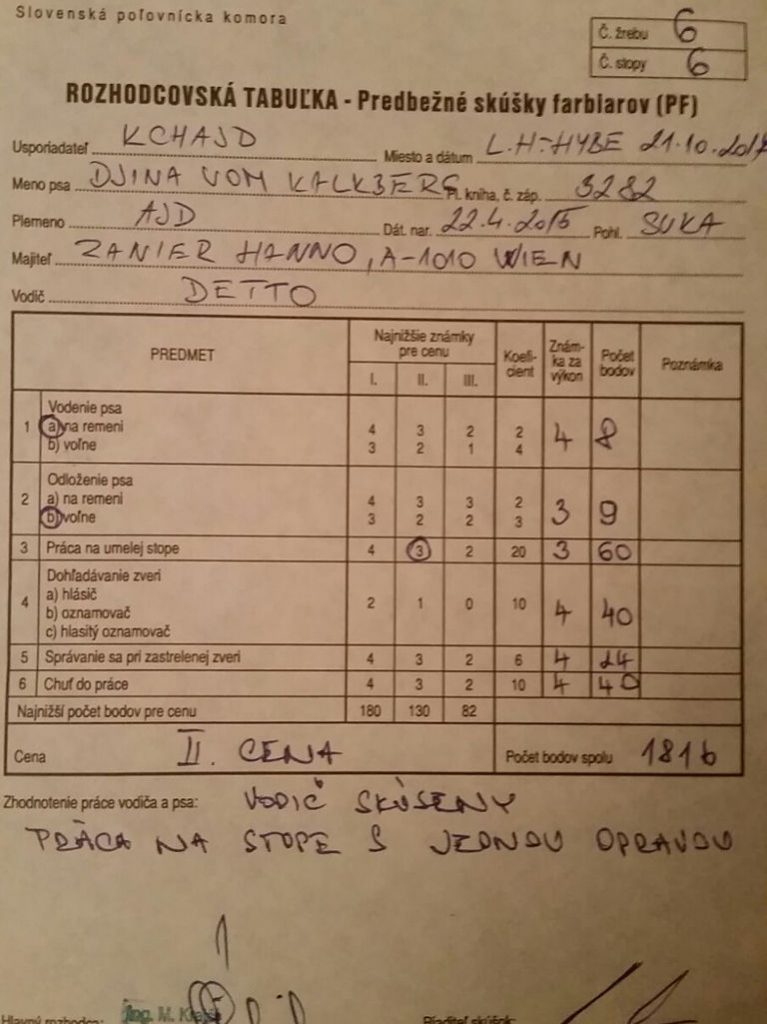 Slovenská poľovnícka komora
Č. žrebu 6
Č. stopy 6
ROZHODCOVSKÁ TABUĽKA - Predbežné skúšky farbiarov (PF)
Usporiadateľ KCHAJD Miesto a dátum L.H-HYBE 21.10.2017
Meno psa DJINA VOM KALKBERG Pl. kniha, č. záp. 3282
Plemeno AJD Dát. nar. 22.4.2015 Pohl. SUKA
Majiteľ ZANIER HANNO, A-1010 WIEN
Vodič DETTO
PREDMET Najnižšie známky pre cenu I. II. III. Koefi-cient Znám-ka za výkon Počet bodov Poznámka
1 Vodenie psa
a) na remeni 4 3 2 2 4 8
b) voľne 3 2 1 4
2 Odloženie psa
a) na remeni 4 3 3 2
b) voľne 3 2 2 3 3 9
3 Práca na umelej stope 4 3 2 20 3 60
4 Dohľadávanie zveri
a) hlásič
b) oznamovač 2 1 0 10 4 40
c) hlasitý oznamovač
5 Správanie sa pri zastrelenej zveri 4 3 2 6 4 24
6 Chuť do práce 4 3 2 10 4 40
Najnižší počet bodov pre cenu 180 130 82
Cena II. CENA Počet bodov spolu 181b
Zhodnotenie práce vodiča a psa: VODIČ SKÚSENY
PRÁCA NA STOPE S JEDNOU OPRAVOU
Hlavný rozhodca: Ing. M.